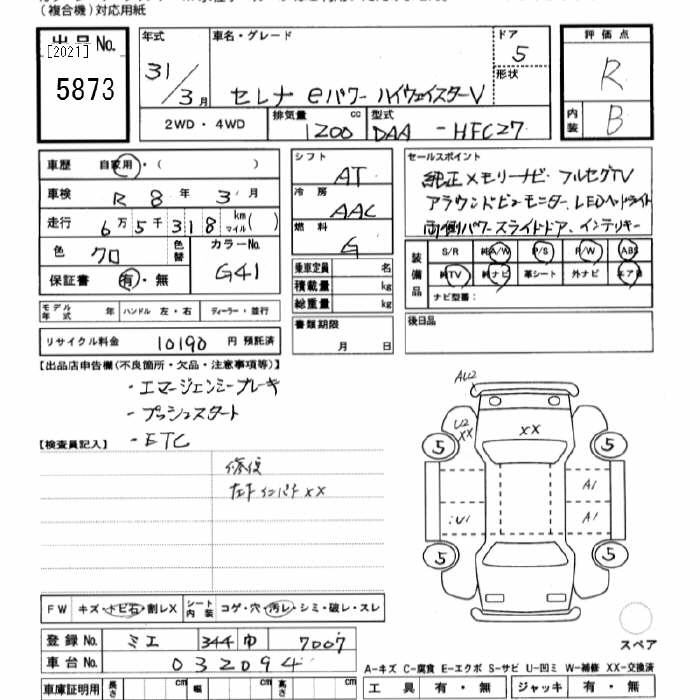 (複合機)対応用紙
出品No.
[2021]
5873
年式
31/3月
車名・グレード
セレナ eパワー ハイウェイスターV
ドア
5
形状
評価点
R
内装
B
2WD・4WD
排気量
1200 cc
型式
DAA -HFC27
車歴 自家用・( )
車検 R 8年 3月
走行 6万5千318 km マイル( )
色 クロ
色替
カラーNo.
G41
保証書 有・無
シフト
AT
冷房
AAC
燃料
G
乗車定員 名
積載量 kg
総重量 kg
書類期限
月 日
セールスポイント
純正メモリーナビ・フルセグTV
アラウンドビューモニター、LEDヘッドライト
両側パワースライドドア、インテリキー
装備品
S/R 純A/W P/S P/W ABS
純TV 純ナビ 革シート 外ナビ エアB
ナビ型番:
後日品
モデル年式 年 ハンドル 左・右 ディーラー・並行
リサイクル料金 10190 円 預託済
【出品店申告欄(不良箇所・欠品・注意事項等)】
・エマージェンシーブレーキ
・プッシュスタート
・ETC
【検査員記入】
修復
左F インパネ XX
AU2
U2
XX
XX
5
5
A1
U1
A1
5
5
スペア
FW キズ・トビ石・割レX シート内装 コゲ・穴・汚レ・シミ・破レ・スレ
登録No. ミエ 344 巾 7007
車台No. 032094
車庫証明用 長さ cm 幅 cm 高さ cm
A-キズ C-腐食 E-エクボ S-サビ U-凹ミ W-補修 XX-交換済
工具 有・無 ジャッキ 有・無